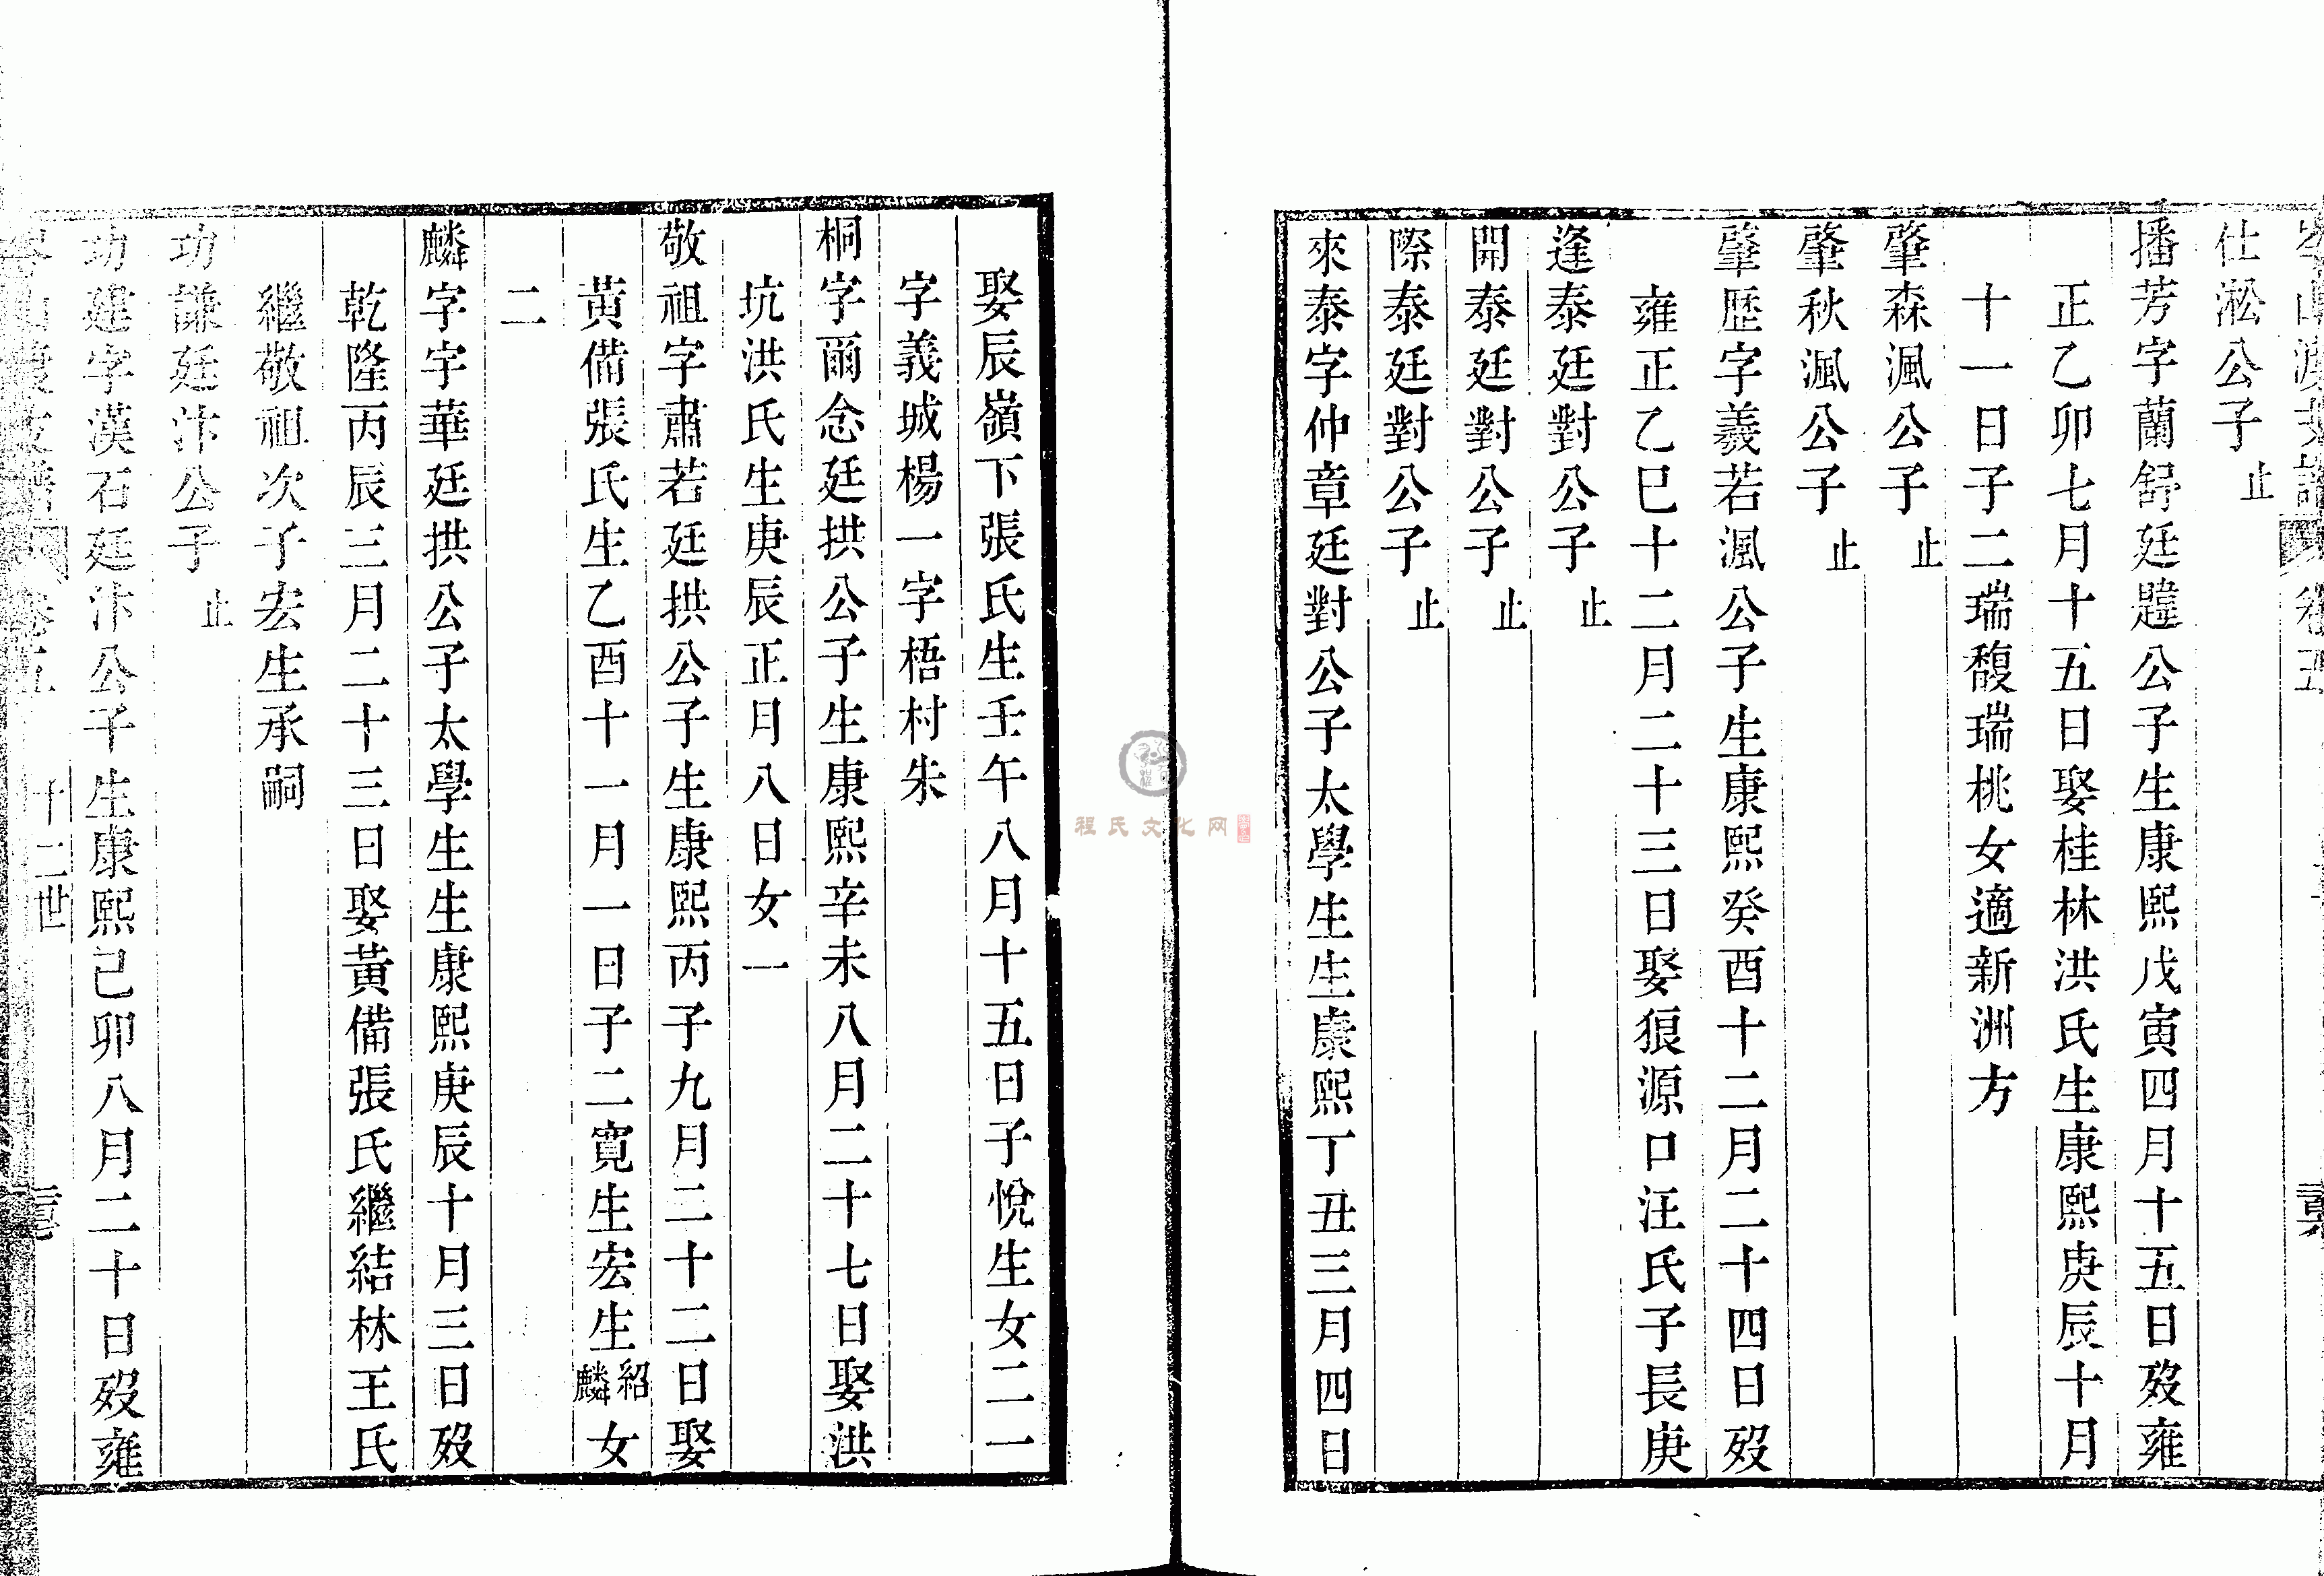 仕淞公子止
播芳字蘭舒廷韙公子生康熙戊寅四月十五日歿雍
正乙卯七月十五日娶桂林洪氏生康熙庚辰十月
十一日子二瑞馥瑞桃女適新洲方
肇森渢公子止
肇秋渢公子止
肇歷字義若渢公子生康熙癸酉十二月二十四日歿
雍正乙巳十二月二十三日娶狼源口汪氏子長庚
逢泰廷對公子止
開泰廷對公子止
際泰廷對公子止
來泰字仲章廷對公子太學生生康熙丁丑三月四日
娶辰嶺下張氏生壬午八月十五日子悅生女二一
字義城楊一字梧村朱
桐字爾念廷拱公子生康熙辛未八月二十七日娶洪
坑洪氏生庚辰正月八日女一
敬祖字肅若廷拱公子生康熙丙子九月二十二日娶
黃備張氏生乙酉十一月一日子二寬生宏生紹麟女
二
麟字宇華廷拱公子太學生生康熙庚辰十月三日歿
乾隆丙辰三月二十三日娶黃備張氏繼結林王氏
繼敬祖次子宏生承嗣
功謙廷汴公子止
功建字漢石廷汴公子生康熙己卯八月二十日歿雍
十二世
程氏文化网